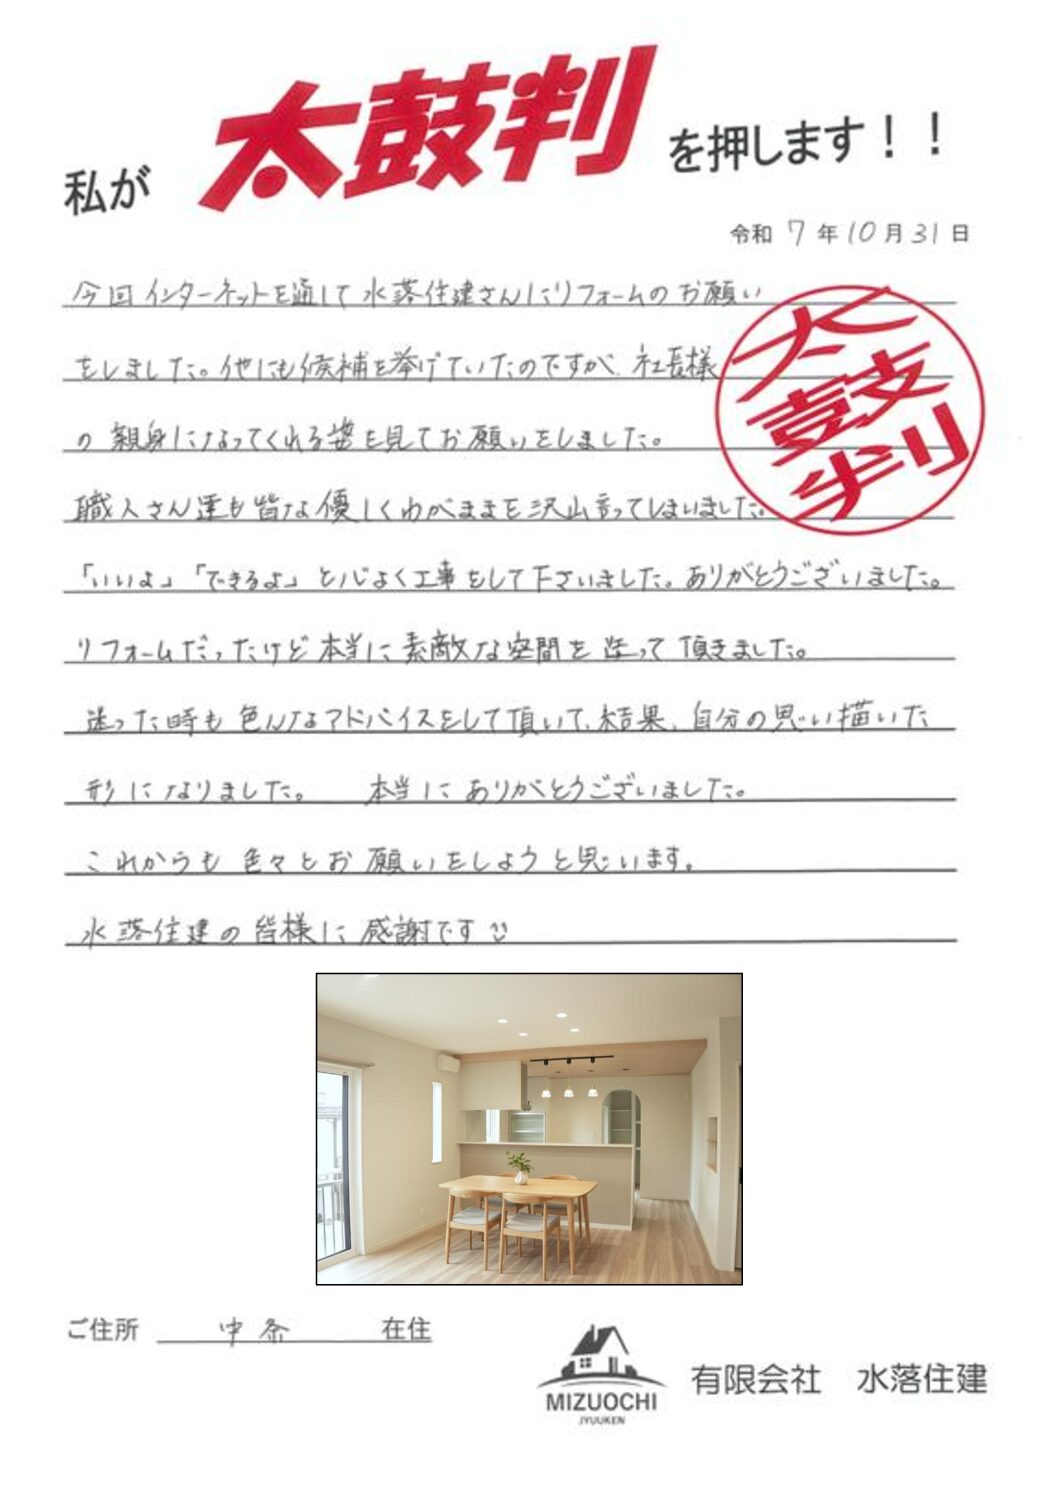 私が太鼓判を押します！！
令和 7 年 10 月 31 日
今回インターネットを通して水落住建さんにリフォームのお願い
をしました。他にも候補を挙げていたのですが、社長様
の親身になってくれる姿を見てお願いをしました。
職人さん達も皆な優しくわがままを沢山言ってしまいました。
「いいよ」「できるよ」と心よく工事をして下さいました。ありがとうございました。
リフォームだったけど本当に素敵な空間を造って頂きました。
迷った時も色んなアドバイスをして頂いて、結果、自分の思い描いた
形になりました。 本当にありがとうございました。
これからも色々とお願いをしようと思います。
水落住建の皆様に感謝です
太鼓判
ご住所 中条 在住
MIZUOCHI
JYUUKEN
有限会社 水落住建